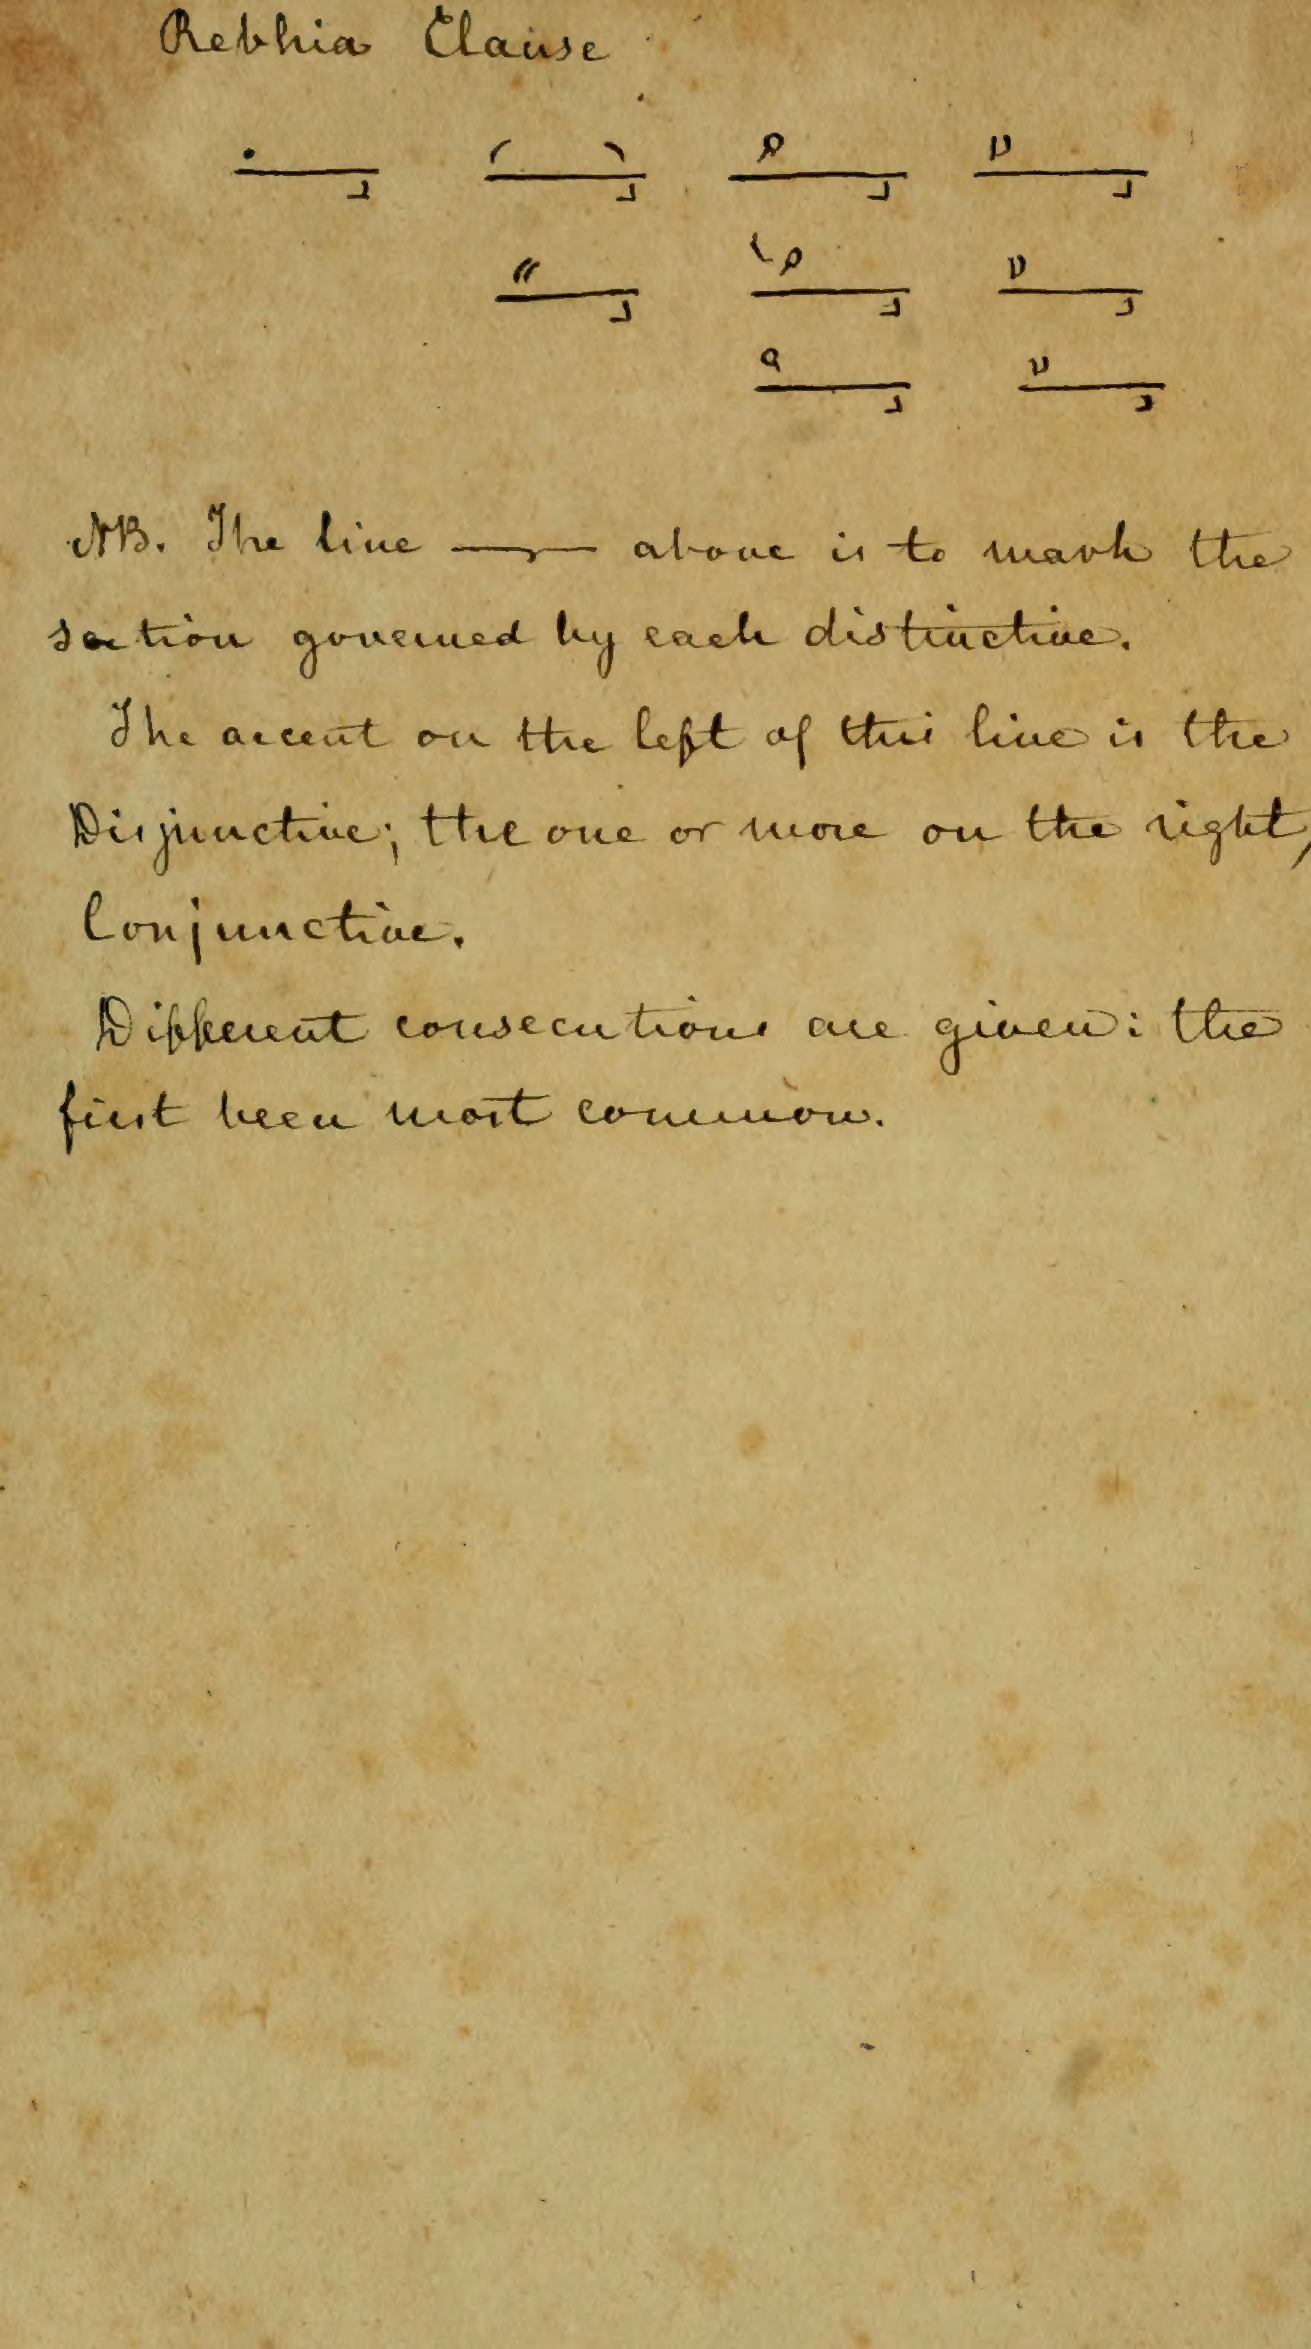 Rebhia Clause
NB. The line —— above is to mark the
section governed by each distinctive.
The accent on the left of this line is the
Disjunctive; the one or more on the right,
Conjunctive.
Different consecutions are given: the
first been most common.